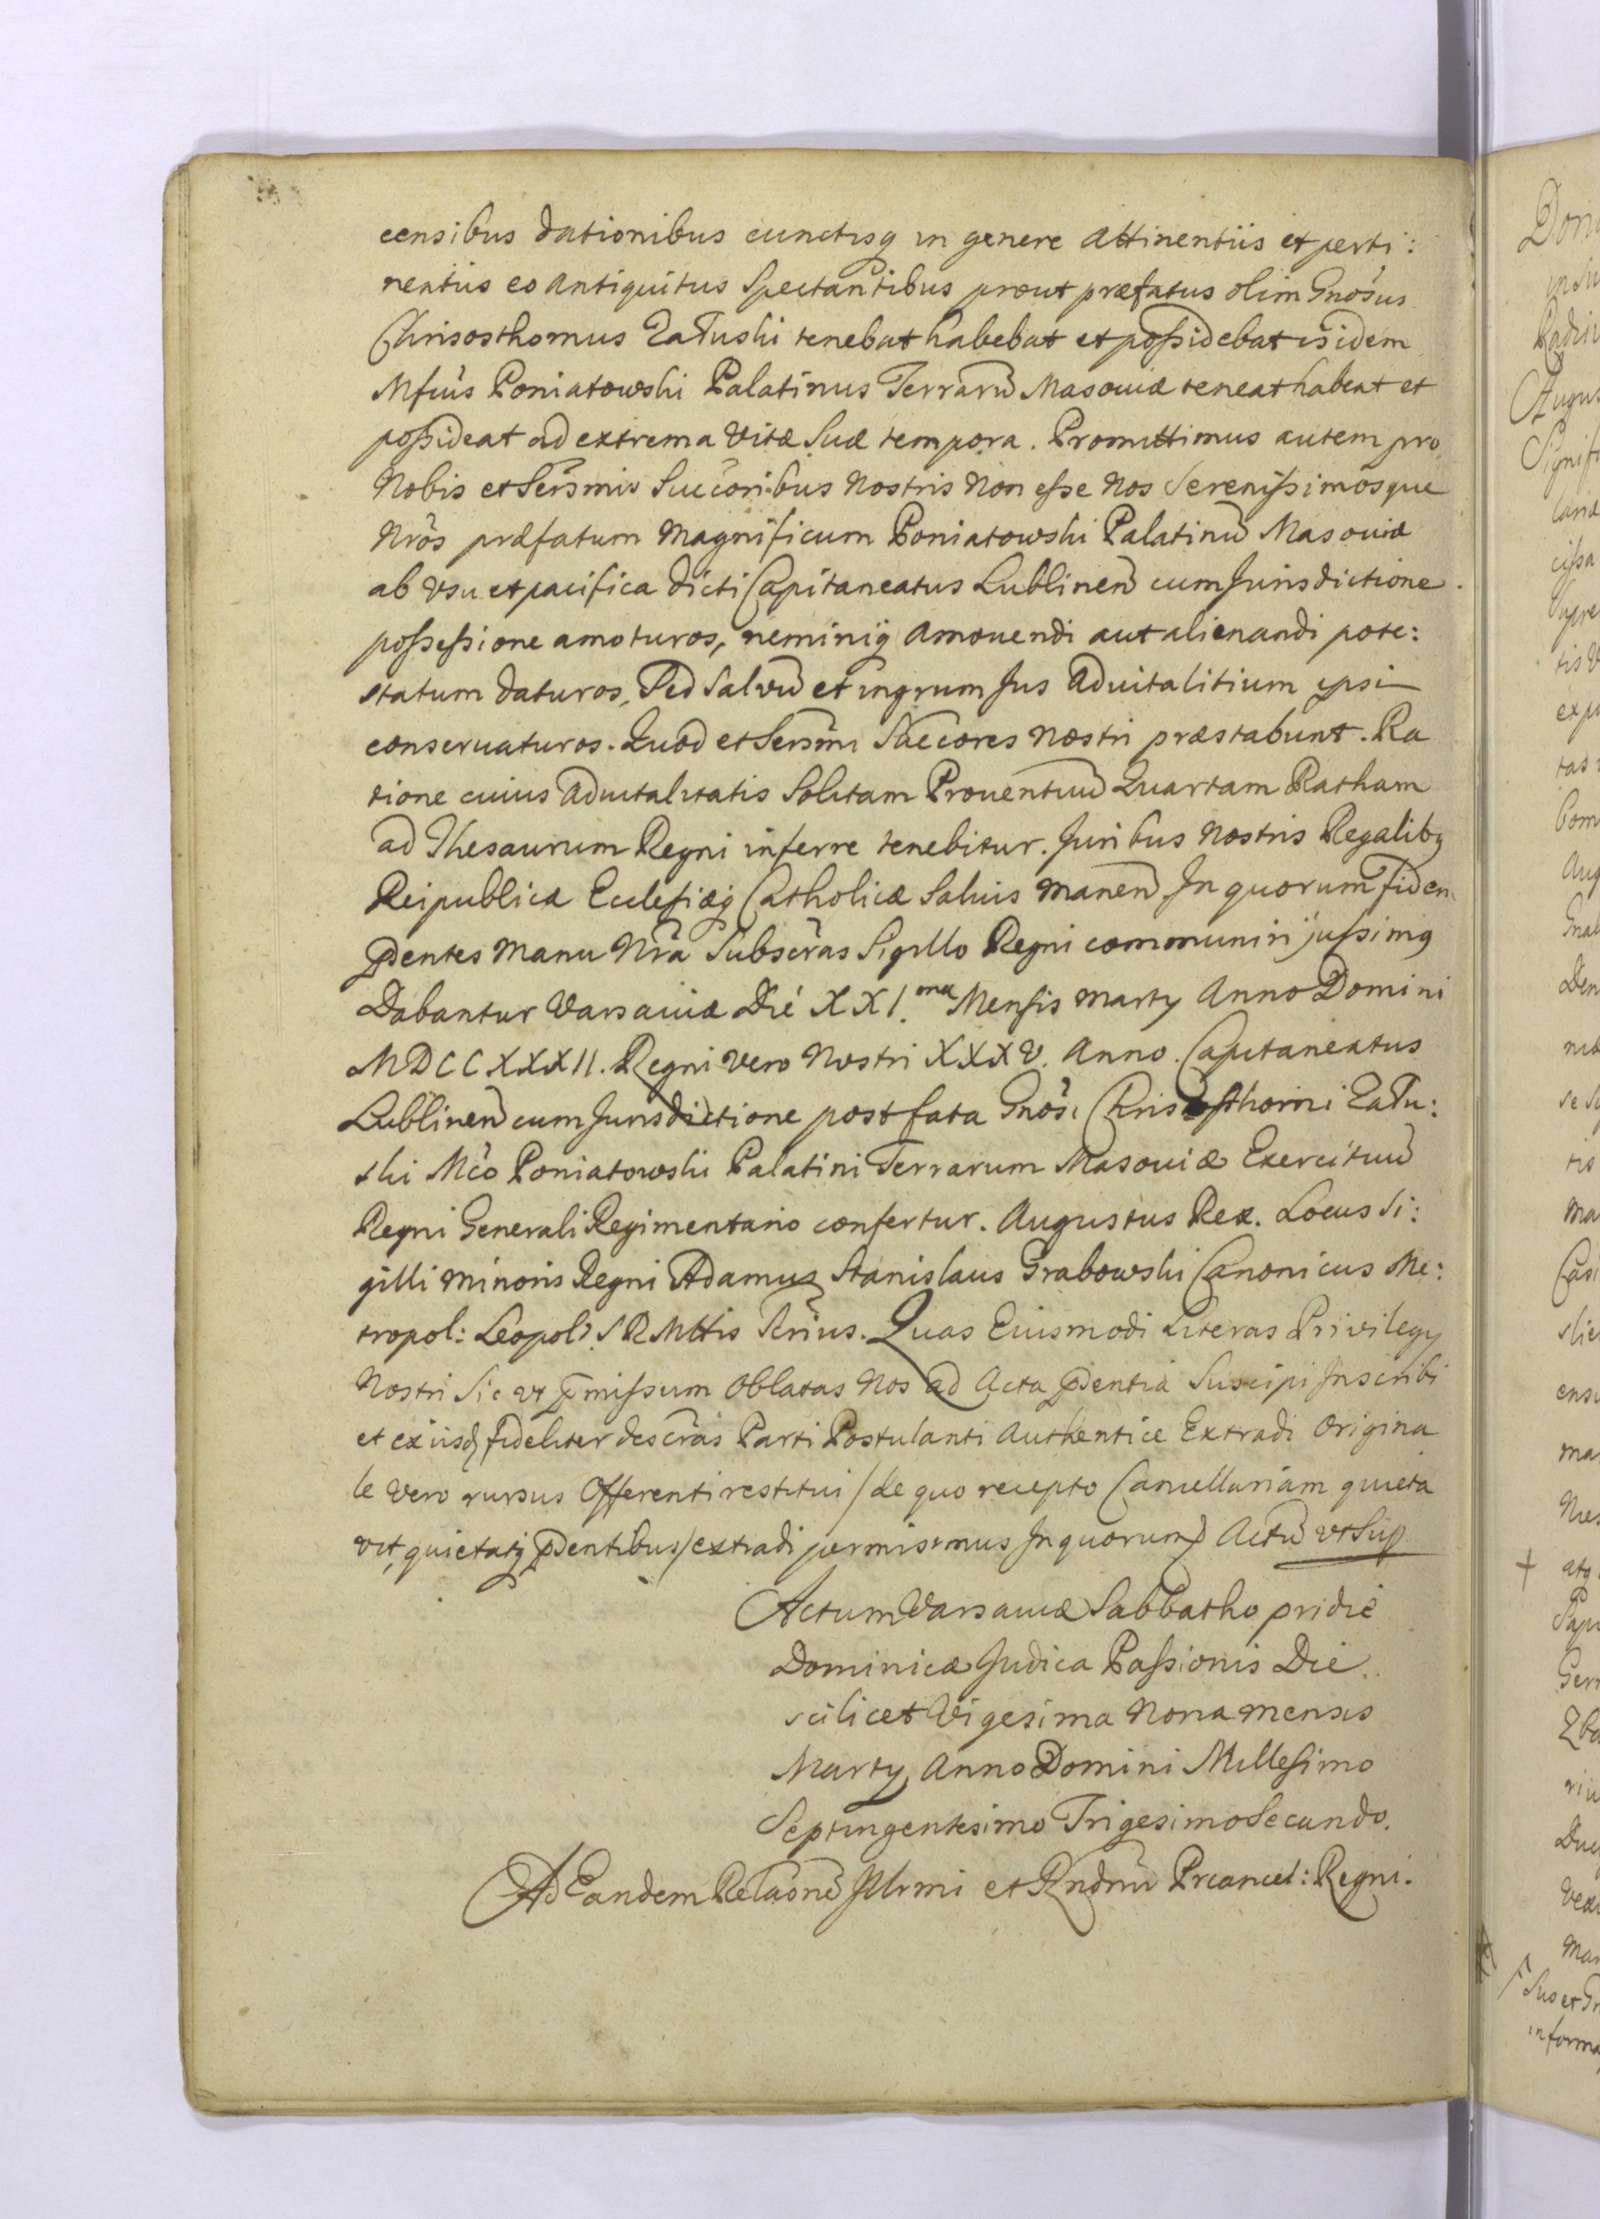 censibus dationibus cunctisq in genere Attinentiis et perti:
nentiis eo Antiquitus Spectantibus prout præfatus olim Gnosus
Chrisosthomus Załuski tenebat habebat et possidebat isidem
Mfius Poniatowski Palatinus Terrarū Masoviæ teneat habeat et
possideat ad extrema Vitæ Suæ tempora. Promittimus autem pro
Nobis et Sersmis Succoribus Nostris Non esse Nos Serenissimosque
Nrōs præfatum Magnificum Poniatowski Palatinū Masoviæ
ab Vsu et pacifica dicti Capitaneatus Lublinen cum Jurisdictione
possessione amoturos, neminiq Amovendi aut alienandi pote:
statum daturos, Sed Salvū et ingrum Jus Advitalitium ipsi
conservaturos. Quod et Sersmi Succores Nostri præstabunt. Ra
tione cuius Advitalitatis Solitam Proventuū Quartam Ratham
ad Thesaurum Regni inferre tenebitur. Juribus Nostris Regalibq
Reipublicæ Ecclesiæq Catholicæ Salvis Manen In quorum fidem
pntes Manu Nrā Subscrās Sigillo Regni communiri jussimq
Dabantur Varsaviæ Die XXI.ma Mensis Marty Anno Domini
MDCCXXXII. Regni vero Nostri XXXV. Anno. Capitaneatus
Lublinen cum Jurisdictione post fata Gnosi Chrisosthomi Zału:
ski Mco Poniatowski Palatini Terrarum Masoviæ Exercituū
Regni Generali Regimentario confertur. Augustus Rex. Locus Si:
gilli Minoris Regni Adamus Stanislaus Grabowski Canonicus Me:
tropol: Leopol: S R Mttis Srius. Quas Eiusmodi Literas Privilegy
Nostri Sic vt pmissum Oblatas Nos ad Acta pntia Suscipi Inscribi
et ex iisd fideliter descrās Parti Postulanti Authentice Extradi Origina
le Vero rursus Offerenti restitui /de quo recepto Cancellariam quieta
vit, quietatq pntibus/ extradi permisimus In quorum Actū vt Sup
Actum Varsaviæ Sabbatho pridie
Dominicæ Judica Passionis Die
scilicet Vigesima Nona Mensis
Marty Anno Domini Millesimo
Septingentesimo Trigesimo Secundo.
Ad Eandem Relaonē Illrmi et Rndmi Prcancel: Regni.